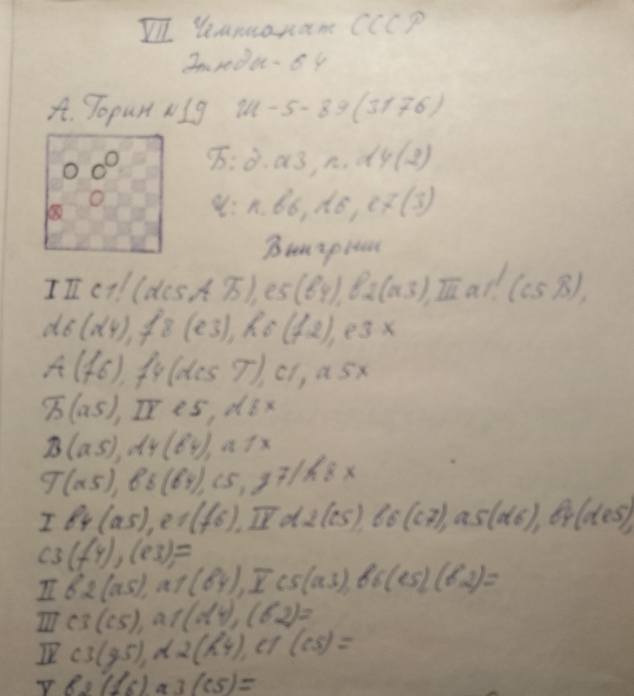 VII Чемпионат СССР
Этюды-64
А. Горин №19 Ш-5-89 (3176)
Б: д. a3, п. d4 (2)
Ч: п. b6, d6, e7 (3)
Выигрыш
I II c1! (dc5 А Б), e5 (b4), b2 (a3), III a1! (c5 В),
d6 (d4), f8 (e3), h6 (f2), e3 x
А (f6), f4 (dc5 Г), c1, a5x
Б (a5), IV e5, d8x
В (a5), d4 (b4), a1x
Г (a5), b8 (b4), c5, g7/h8 x
I b4 (a5), e1 (f6), IV d2 (c5), b6 (c7), a5 (d6), b4 (de5)
c3 (f4), (e3)=
II b2 (a5), a1 (b4), V c5 (a3), b6 (e5), (b2)=
III c3 (c5), a1 (d4), (b2)=
IV c3 (g5), d2 (h4), e1 (c5)=
V b2 (f6), a3 (c5)=